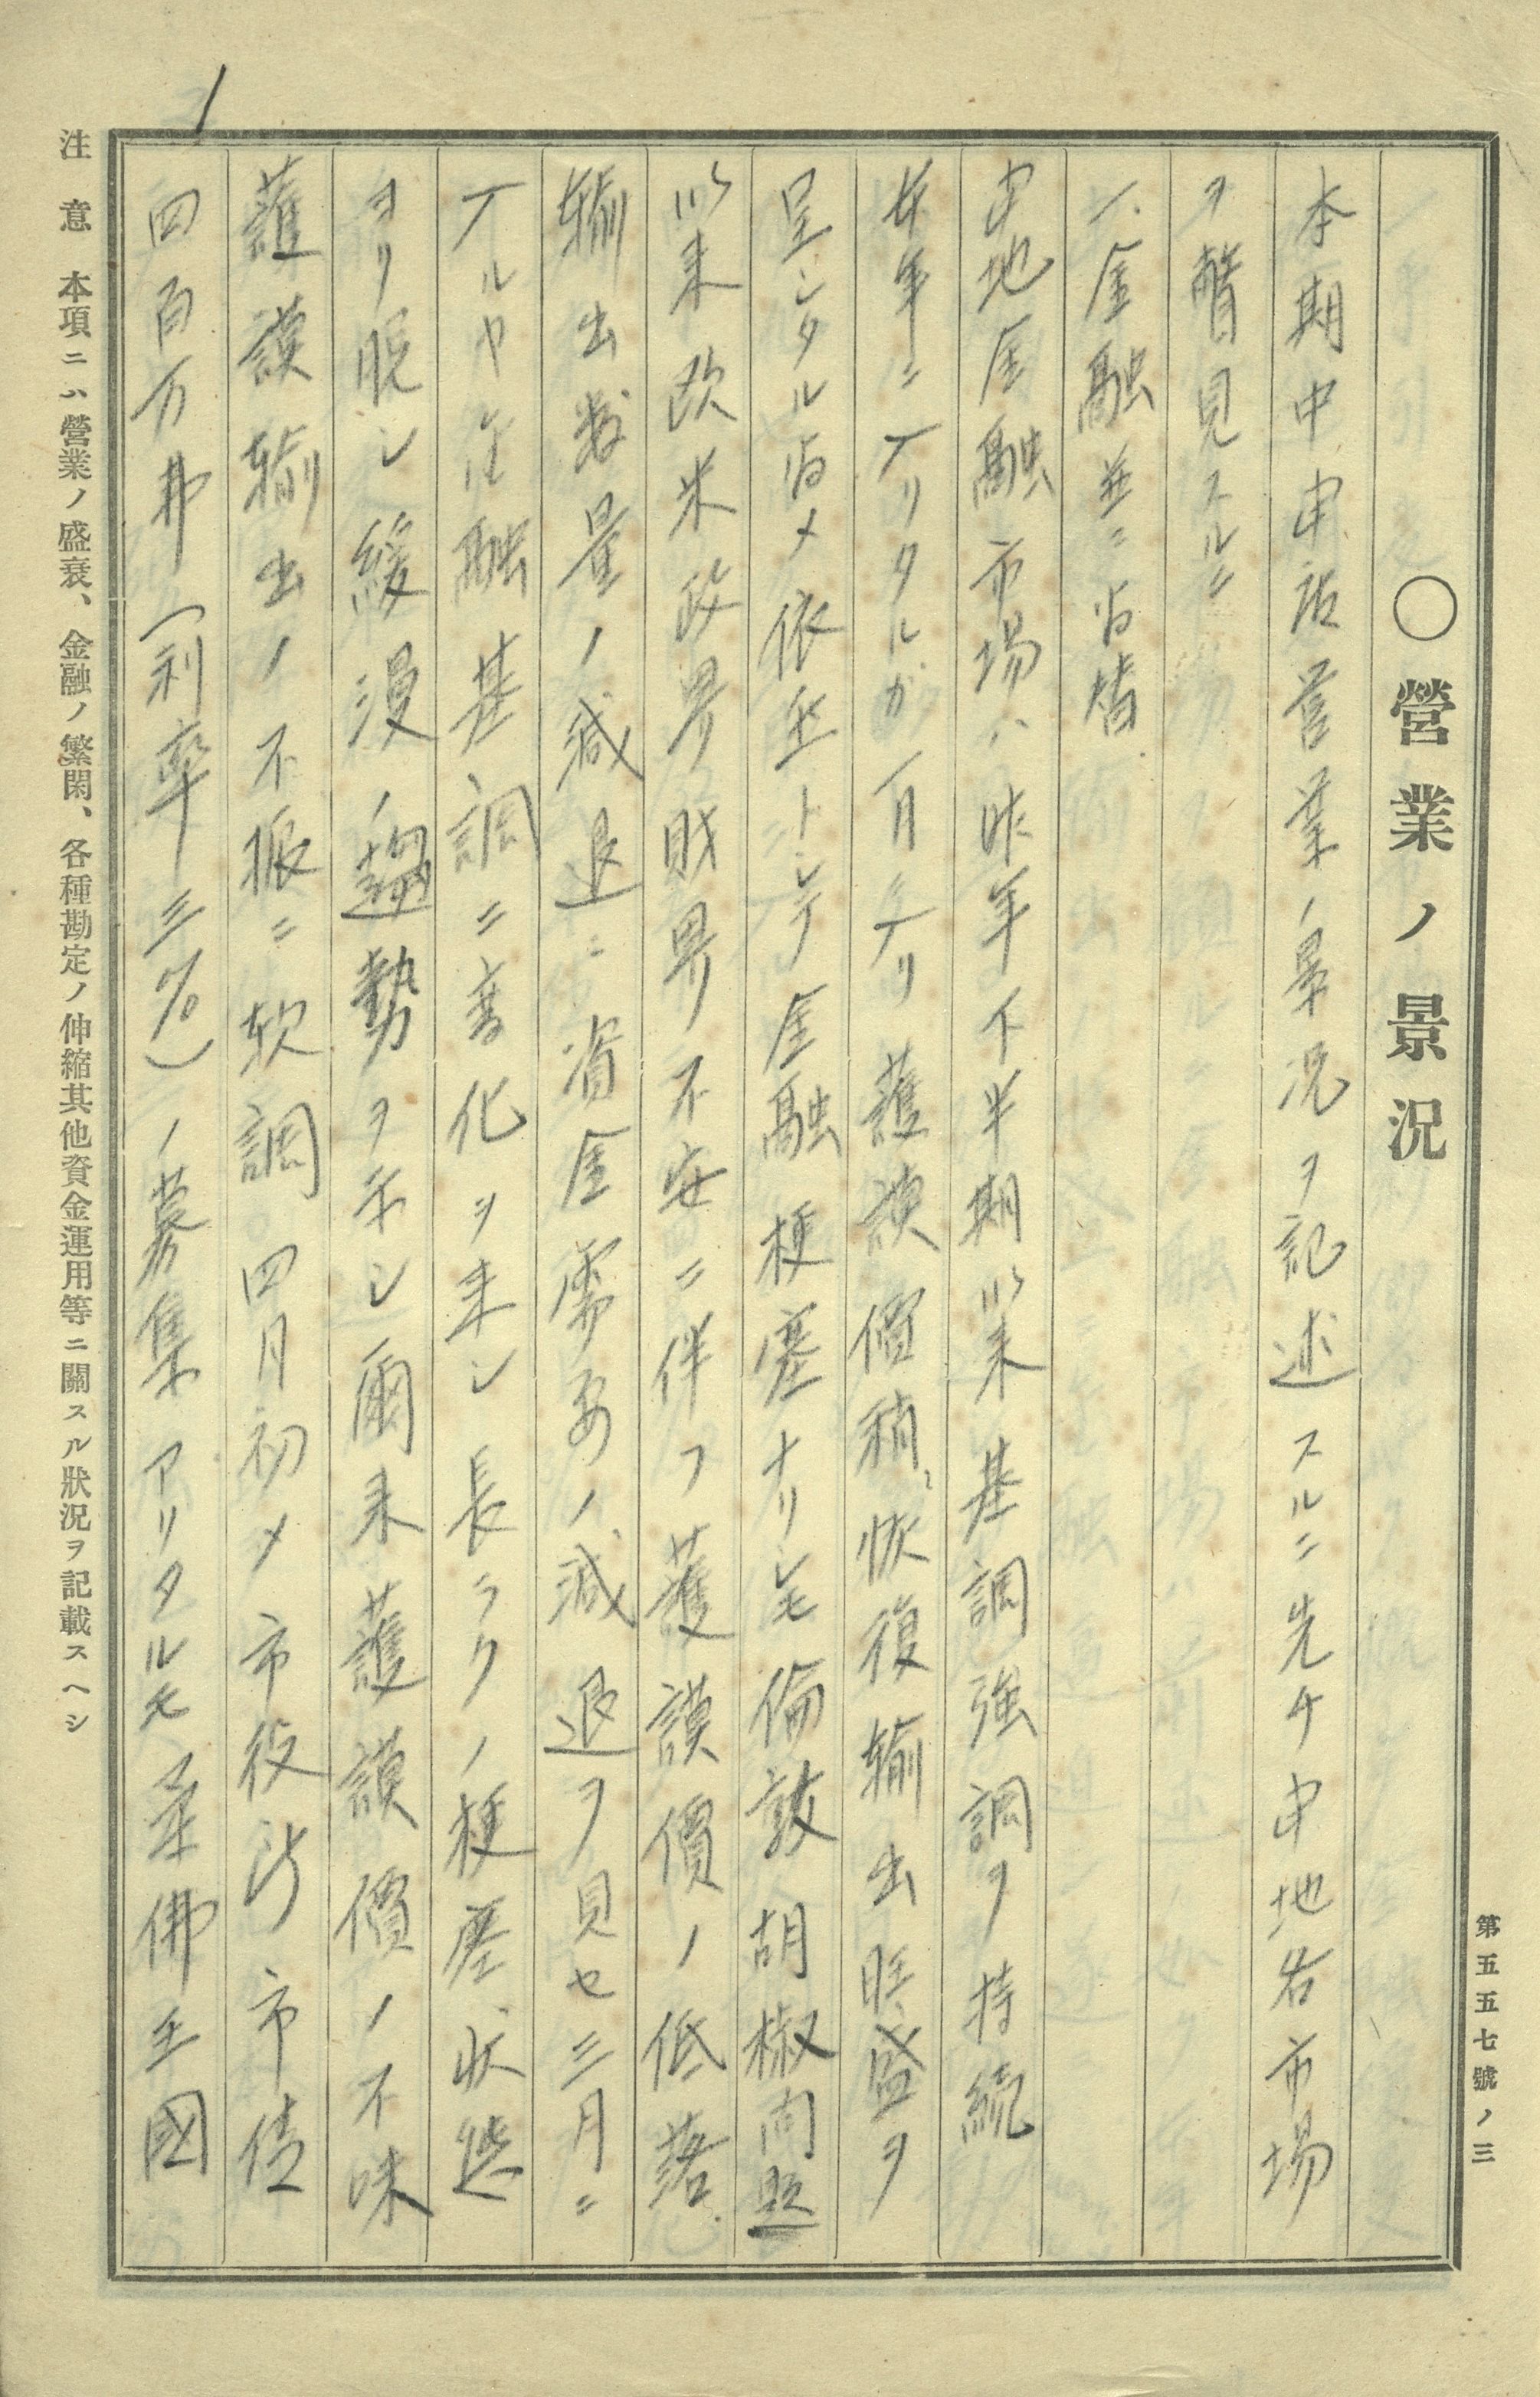 第五五七號ノ三
〇營業ノ景況
本期中申店營業ノ景況ヲ記述スルニ先チ申地各市場
ヲ瞥見スルニ
一、金融並ニ為替
申地金融市場ハ昨年下半期以来基調強調ヲ持続
本年ニ入リタルガ一月ニ入リ護謨價稍々恢復輸出旺盛ヲ
呈シタル為メ依然トシテ金融梗塞ナリシモ倫敦胡椒問題
以来欧米政界財界不安ニ伴フ護謨價ノ低落
輸出数量ノ減退ニ資金需要ノ減退ヲ見セ三月ニ
入ルヤ金融基調ニ変化ヲ来シ長ラクノ梗塞状態
ヨリ脱シ緩漫ノ趨勢ヲ示シ爾来護謨價ノ不味
護謨輸出ノ不振ニ軟調四月初メ市役所市債
四百万弗(利率三%)ノ募集アリタルモ柔佛王國
注意 本項ニハ營業ノ盛衰、金融ノ繁閑、各種勘定ノ伸縮其他資金運用等ニ關スル狀況ヲ記載スヘシ
1